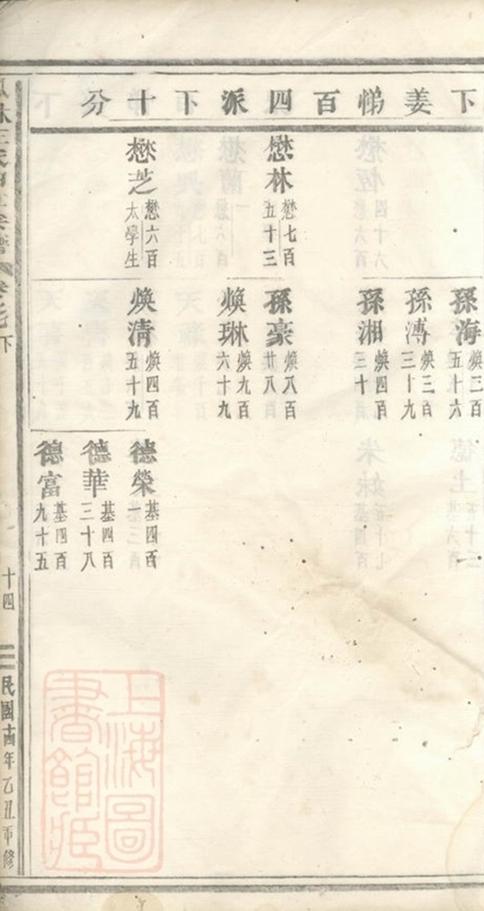 下姜悌百四派下十分
懋林 懋七百五十三
懋芝 懋六百 太學生
孫海 煥三百五十六
孫溥 煥三百三十九
孫湘 煥四百三十
孫豪 煥八百廿八
煥琳 煥九百六十九
煥清 煥四百五十九
德榮 基四百一
德華 基四百三十八
德富 基四百九十五
下
十四
民國十四年乙丑重修
上海圖書館藏